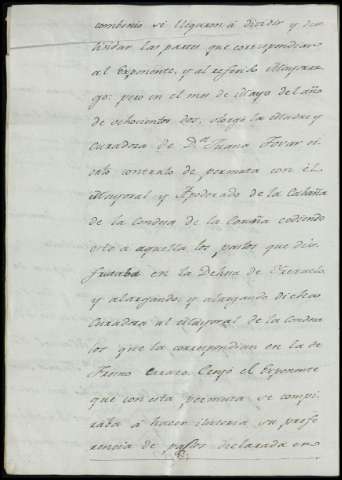 combenio se llegaron á dividir y des
lindar las partes que correspondian
al Exponente, y al referido Mayoraz
go: pero en el mes de Mayo del año
de ochocientos dos, otorgó la Madre y
Curadora de D.ª Juana Tovar
contrato de permuta con el
Mayoral y Apoderado de la Cabaña
de la Condesa de la Coruña cediendo
este á aquella los pastos que dis
frutaba en la Dehesa de
y alargando y alargando dicha
Curadora al Mayoral de la Condesa
los que la correspondian en la de
Fresno Creyó el Exponente
que con esta permuta se conspi
raba á hacer ilusoria su prefe
rencia de pastos declarada en